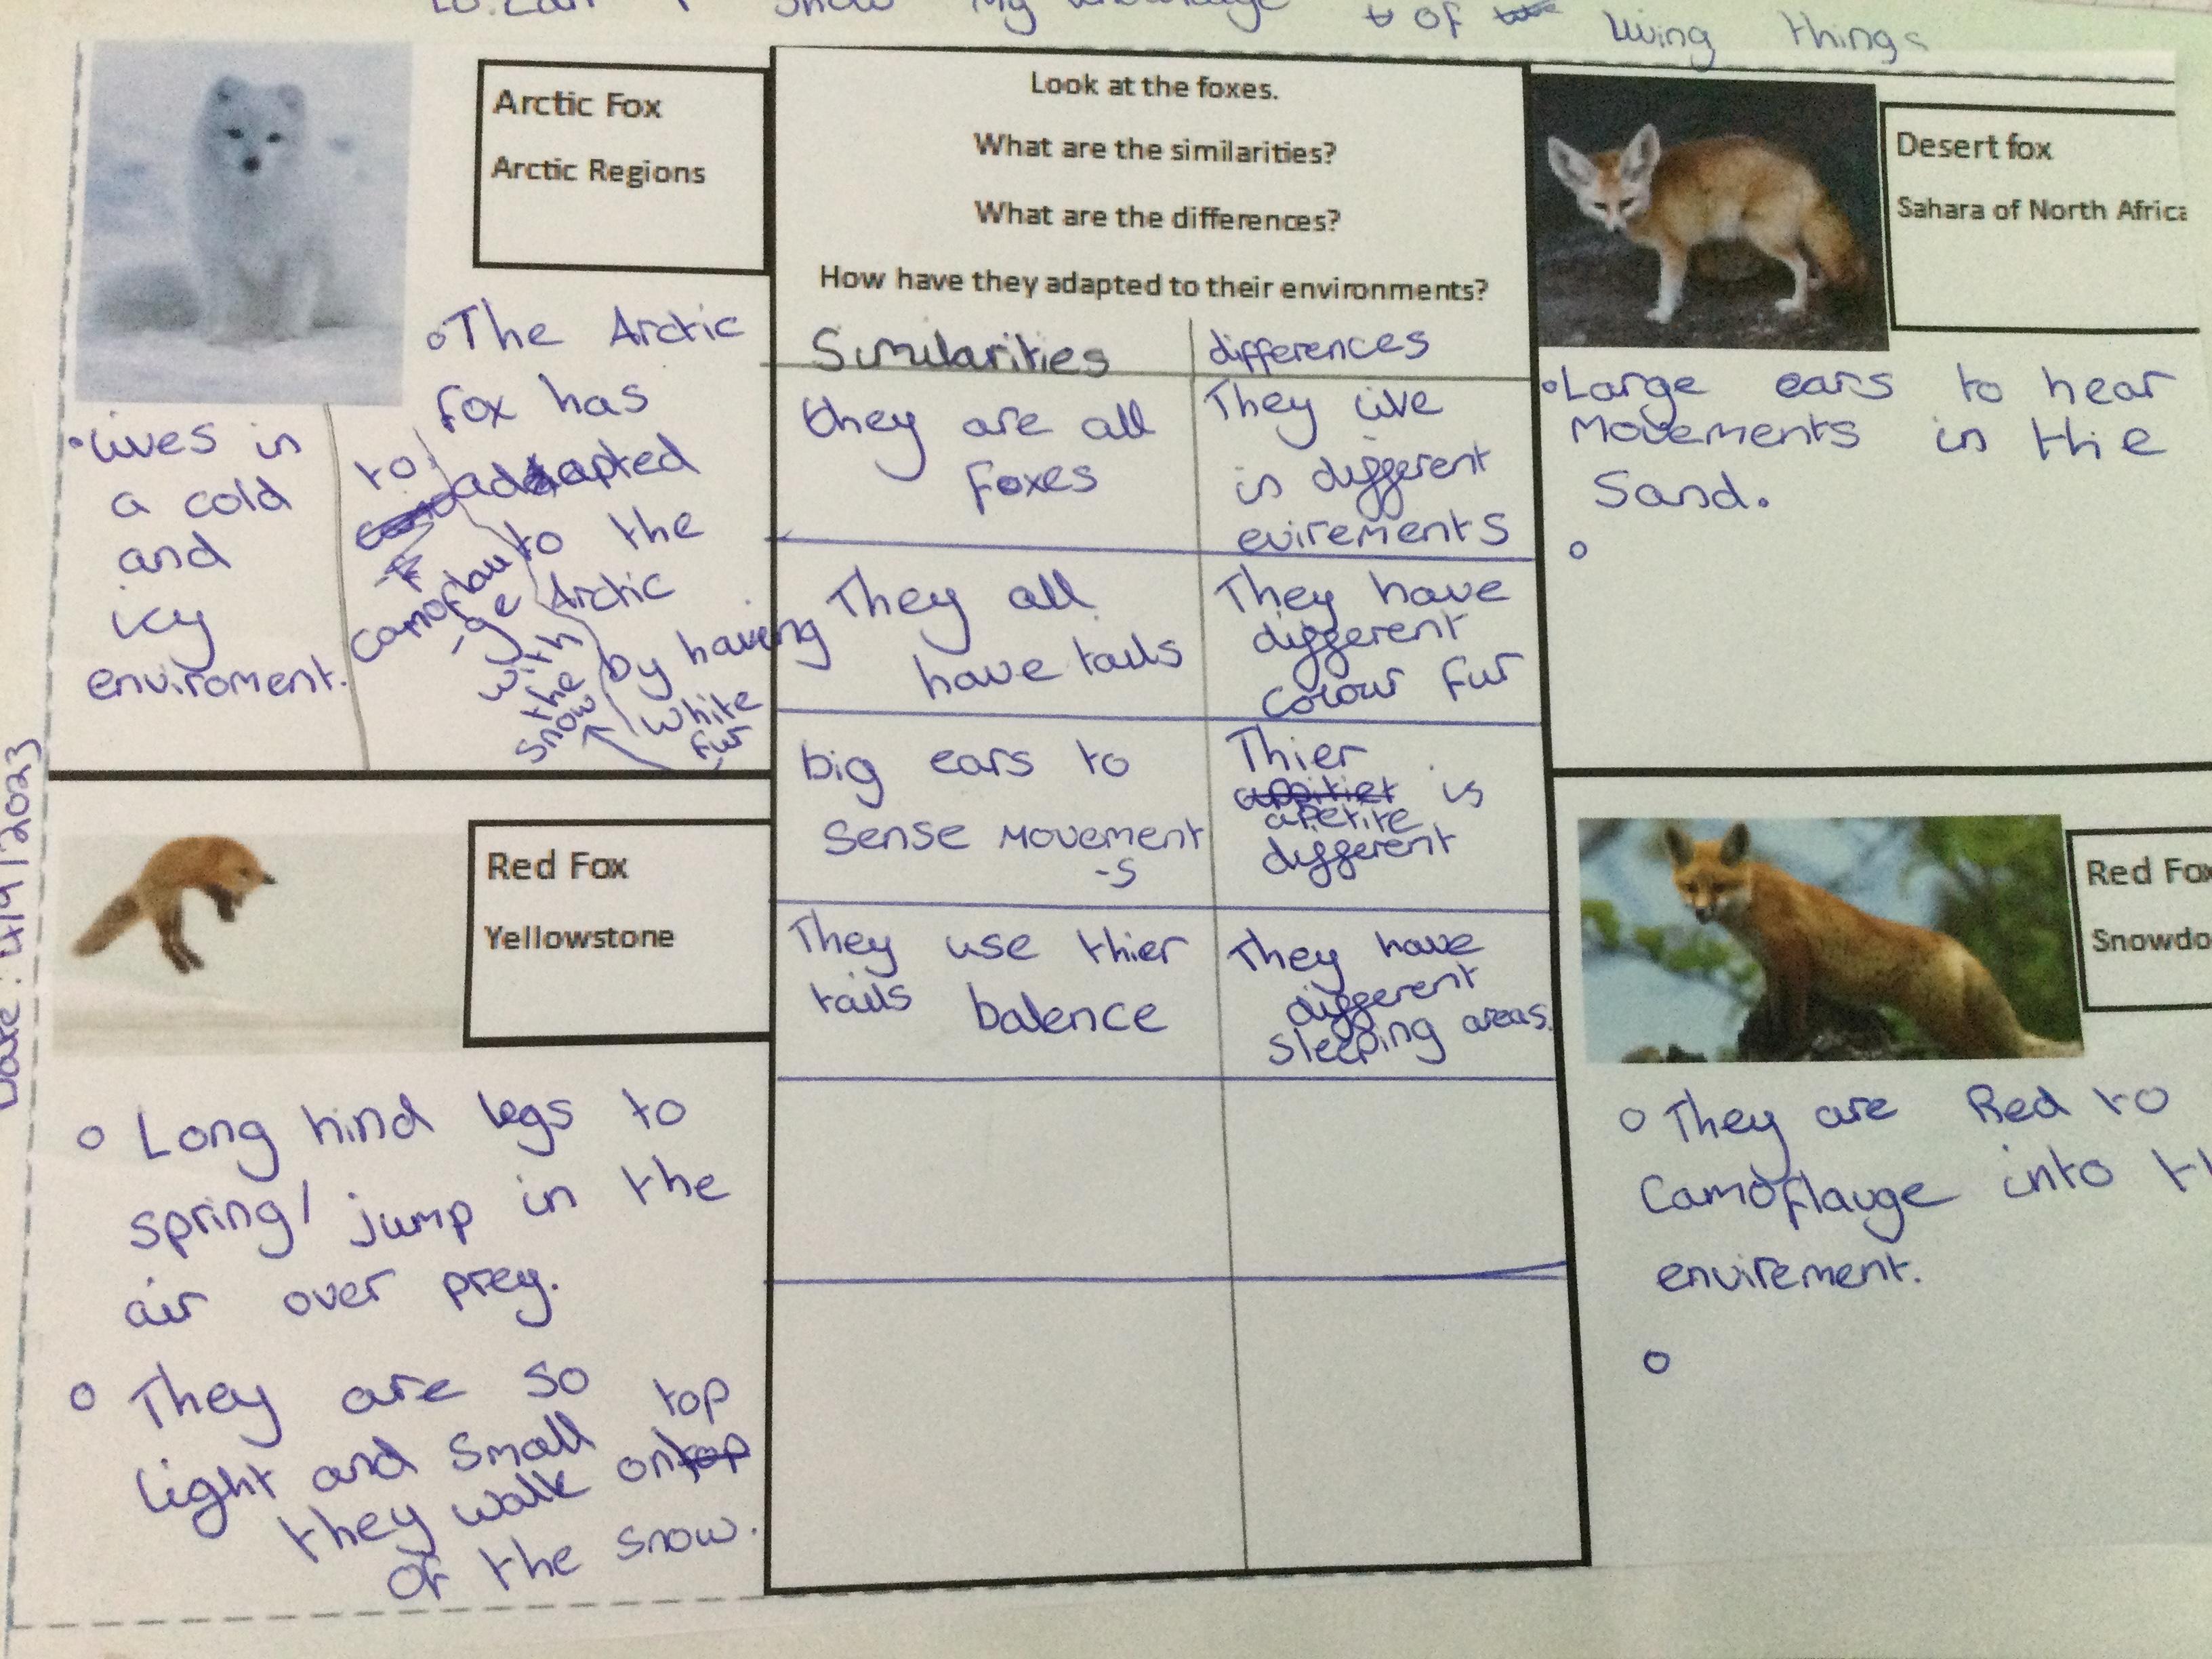 LO: Can I show my knowledge of living things
Date: 4/9/2023
Arctic Fox
Arctic Regions
Look at the foxes.
What are the similarities?
What are the differences?
How have they adapted to their environments?
Desert fox
Sahara of North Africa
•Lives in
a cold
and
icy
enviroment.
•The Arctic
fox has
adapted
to the
Arctic
by having
white
fur
to
camoflau
-ge
with
the
snow
Similarities
differences
they are all
foxes
They live
in different
evirements
They all
have tails
They have
different
colour fur
big ears to
sense movement
-s
Thier
is
apetite
different
They use thier
tails balence
They have
different
sleeping areas.
•Large ears to hear
movements in the
sand.
Red Fox
Yellowstone
• Long hind legs to
spring/ jump in the
air over prey.
• They are so
light and small
they walk on top
of the snow.
Red Fox
Snowdo
• They are Red to
camoflauge into th
envirement.